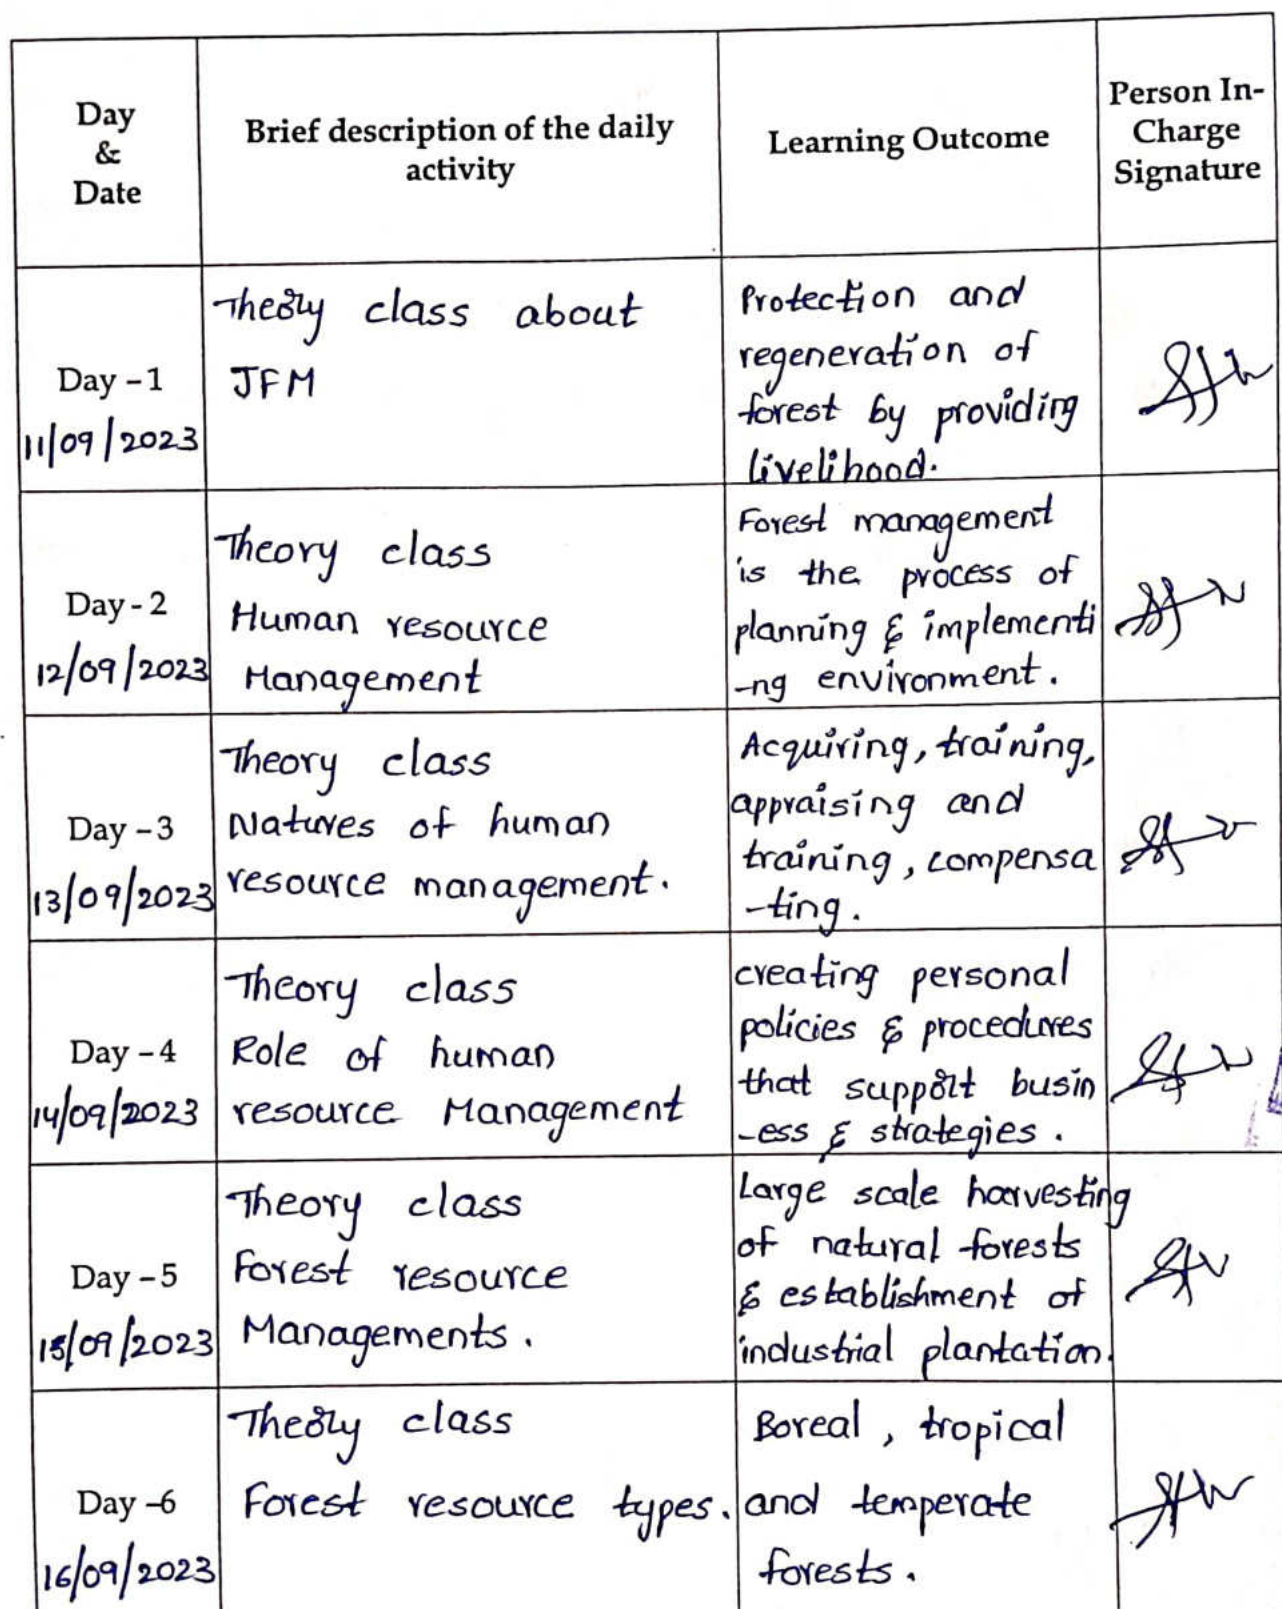 Day
&
Date
Brief description of the daily
activity
Learning Outcome
Person In-
Charge
Signature
Day - 1
11/09/2023
Theory class about
JFM
Protection and
regeneration of
forest by providing
livelihood.
Day - 2
12/09/2023
Theory class
Human resource
Management
Forest management
is the process of
planning & implementi
-ng environment.
Day - 3
13/09/2023
Theory class
Natures of human
resource management.
Acquiring, training,
appraising and
training, compensa
-ting.
Day - 4
14/09/2023
Theory class
Role of human
resource Management
creating personal
policies & procedures
that support busin
-ess & strategies.
Day - 5
15/09/2023
Theory class
Forest resource
Managements.
Large scale harvesting
of natural forests
& establishment of
industrial plantation.
Day -6
16/09/2023
Theory class
Forest resource types.
Boreal, tropical
and temperate
forests.